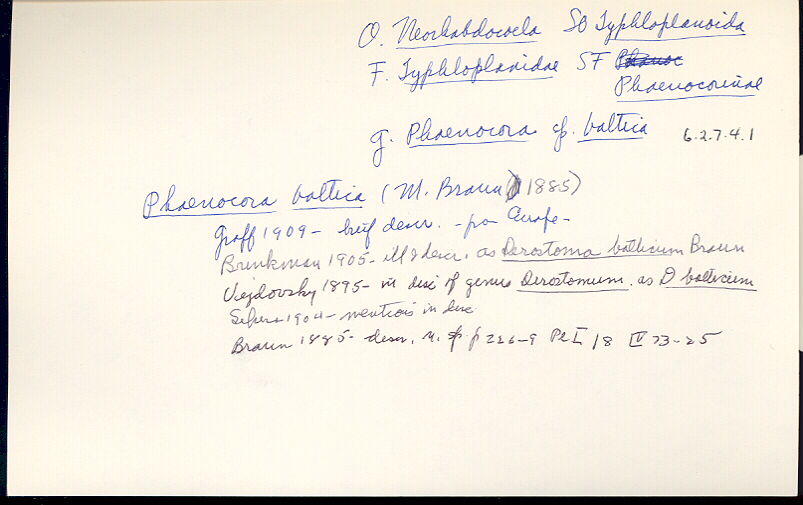 O. Neorhabdocoela SO Typhloplanoida
F. Typhloplanidae SF Phaenoc
Phaenocorinae
g. Phaenocora cf. baltica 6.2.7.4.1
Phaenocora baltica (M. Braun 1885)
Graff 1909 - brief descr. - fr Europe -
Brinkman 1905 - ill & descr. as Derostoma balticum Braun
Vejdovsky 1895 - in disc of genus Derostomum. as D balticum
1904 - mentions in disc
Braun 1885 - descr. n. sp. p 226-9 Pl I 18 IV 23-25